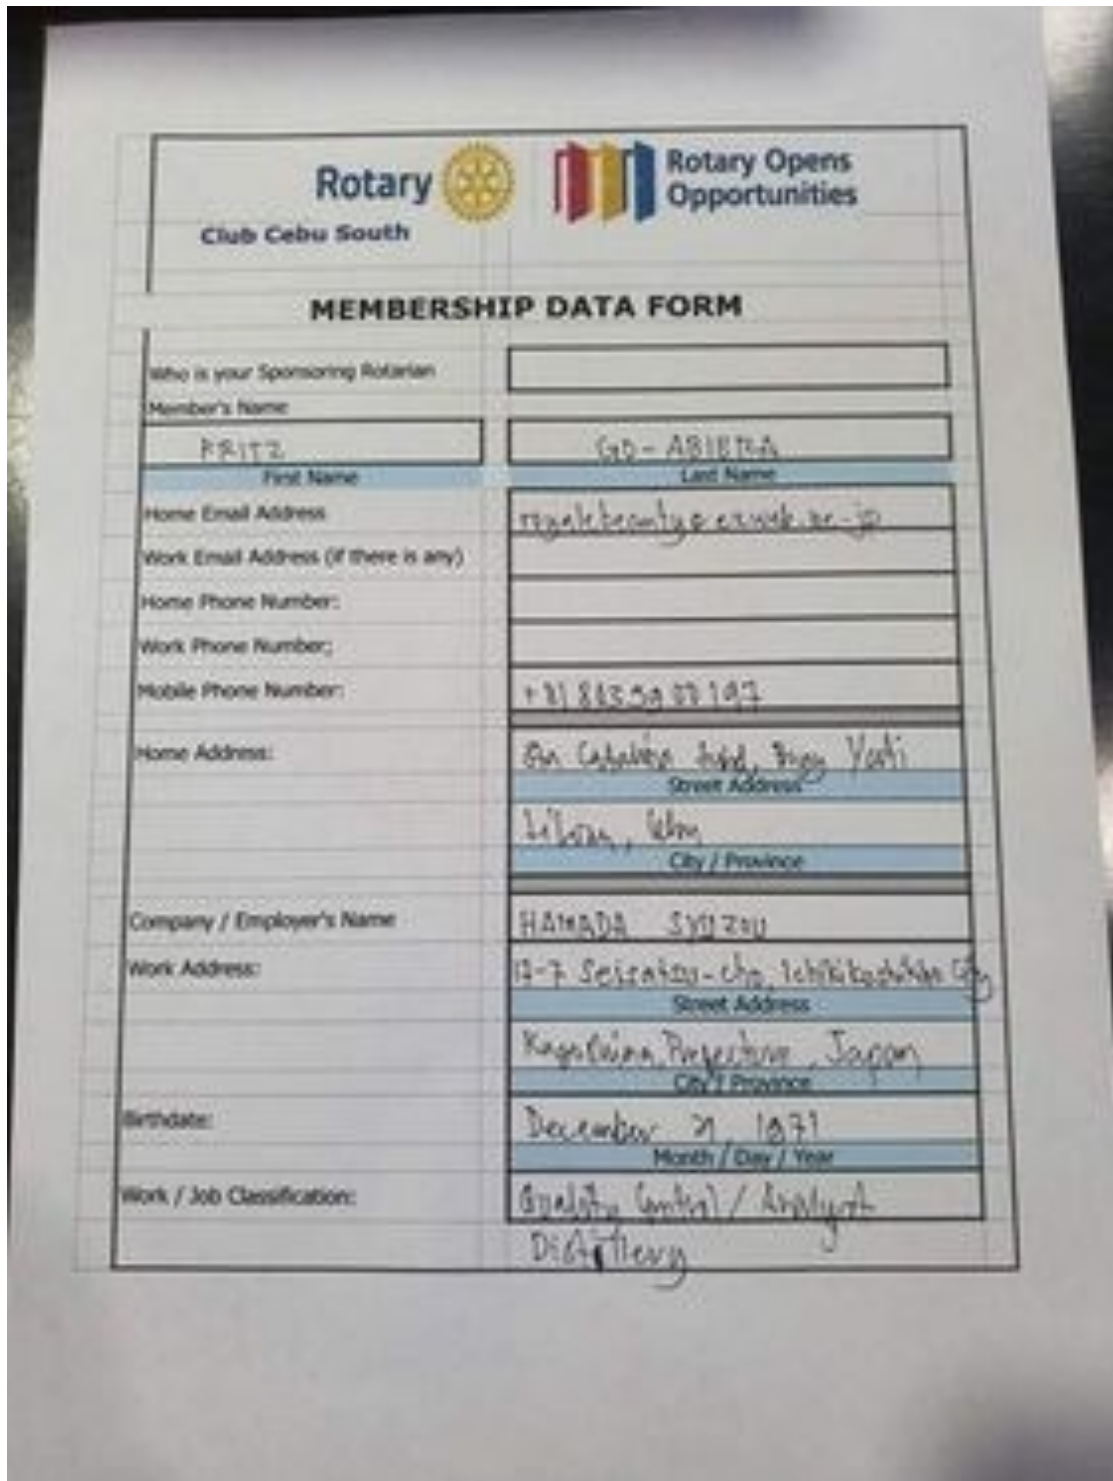 Rotary
Rotary Opens
Opportunities
Club Cebu South
MEMBERSHIP DATA FORM
Who is your Sponsoring Rotarian
Member's Name
FRITZ GO-ABIERA
First Name Last Name
Home Email Address
Work Email Address (if there is any)
Home Phone Number:
Work Phone Number;
Mobile Phone Number:
Home Address: Yati
Street Address
Liloan, Cebu
City / Province
Company / Employer's Name HAMADA SYUZOU
Work Address: 12-7 City
Street Address
Kagoshima Prefecture, Japan
City / Province
Birthdate: December 21, 1971
Month / Day / Year
Work / Job Classification: Quality Control / Analyst
Distillery